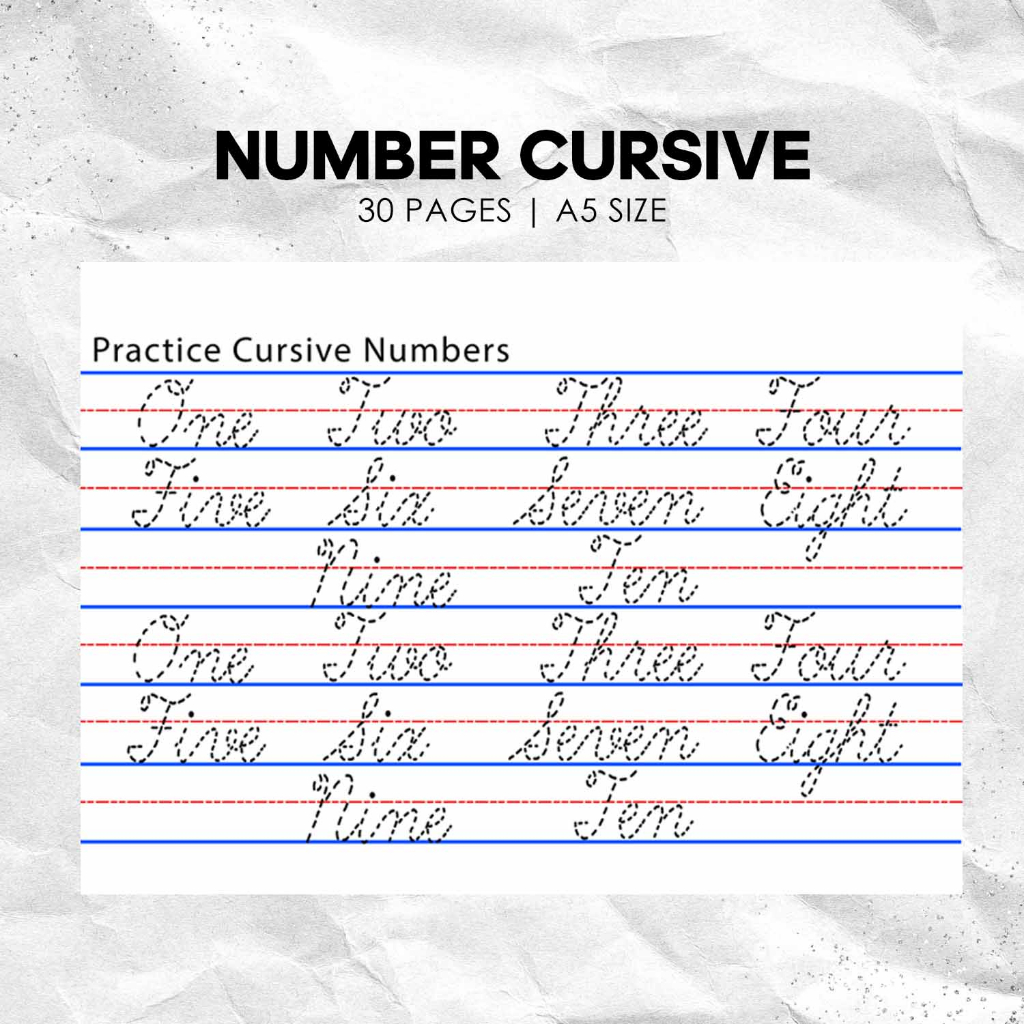 NUMBER CURSIVE
30 PAGES | A5 SIZE
Practice Cursive Numbers
One Two Three Four
Five Six Seven Eight
Nine Ten
One Two Three Four
Five Six Seven Eight
Nine Ten